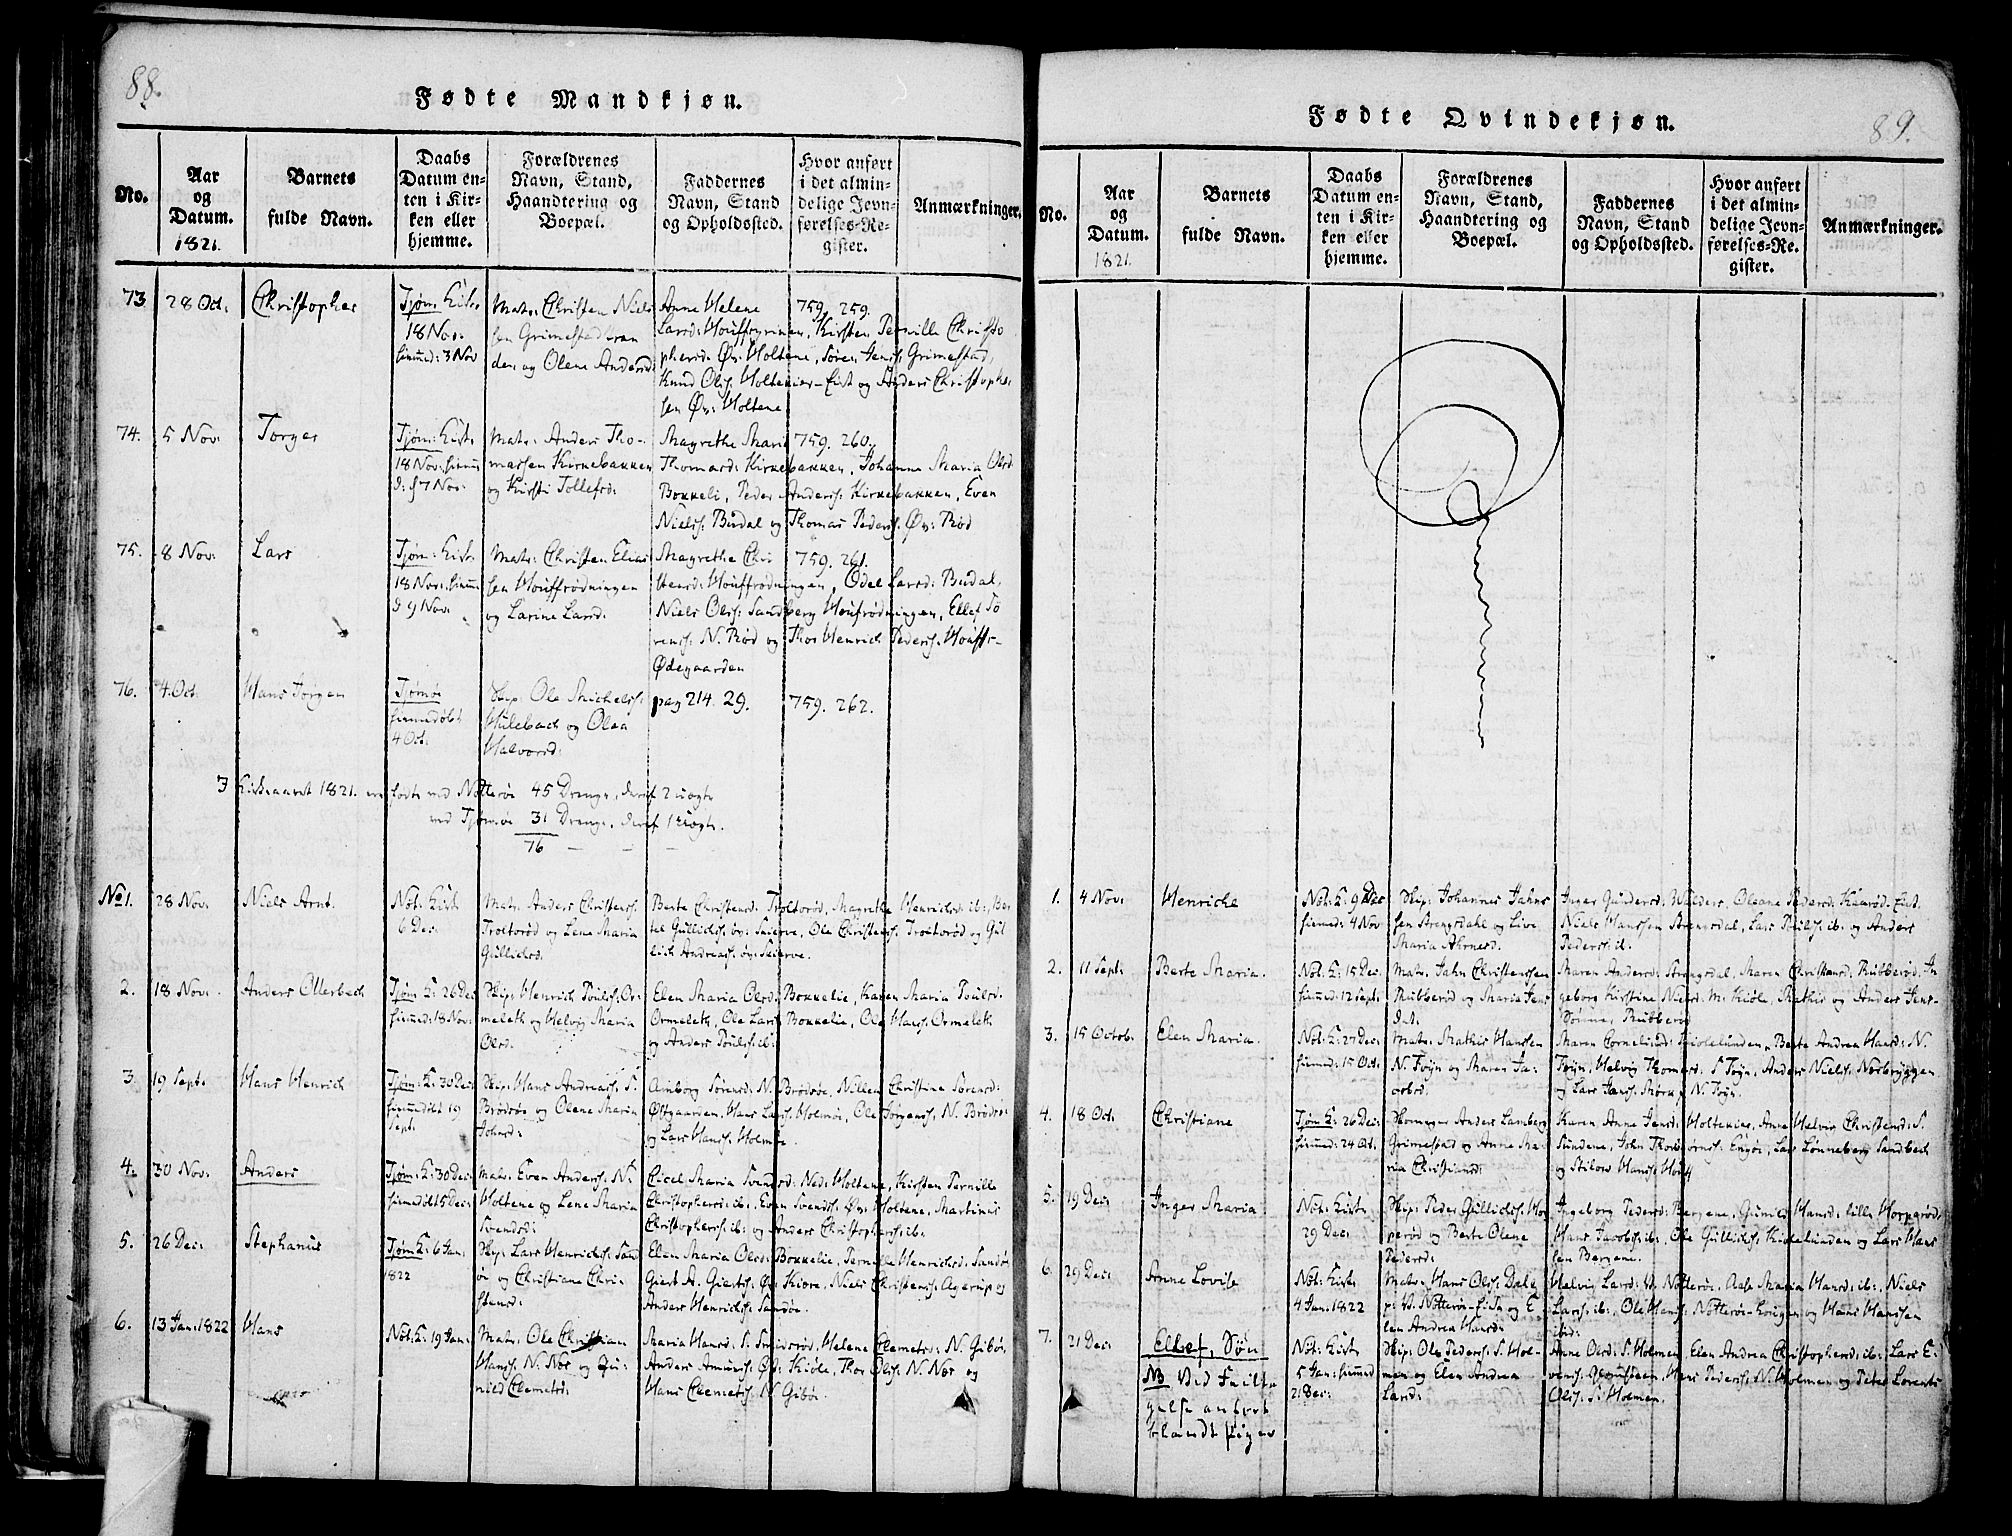 88.
Fødte Mandkjøn.
No.
Aar
og
Datum.
1821.
Barnets
fulde Navn.
Daabs
Datum en-
ten i Kir-
ken eller
hjemme.
Forældrenes
Navn, Stand,
Haandtering og
Boepæl.
Faddernes
Navn, Stand
og Opholdssted.
Hvor anført
i det almin-
delige Jevn-
førelses-Re-
gister.
Anmærkninger.
73
28 Oct:
Christopher
Tjøm: Kirke
18 Nov:
hiemd: 3 Nov
Matr: Christen Niels
sen Grimestad
den og Olene Andersd:
Anne Helene
Larsd: Kirsten Pernille Christo
phersd: Øv: Holtene, Søren Jens: Grimestad,
Knud Ols: Holtekier-Eiet og Anders Christopher
sen Øv: Holtene
759. 259.
74.
5 Nov:
Torger
Tjøm: Kirk:
18 Nov: hiemd
d: 7 Nov:
Matr: Anders Tho-
massen Kirkebakken
og Kirsti Tollefsd:
Magrethe Marie
Thomasd: Kirkebakken, Johanne Maria Olsd
Bokkeli, Peder Anders: Kirkebakken, Even
Niels: Budal og Thomas Peders: Øv: Rød
759. 260.
75.
8 Nov:
Lars
Tjøm: Kirk:
18 Nov: hiemd
d 9 Nov:
Matr: Christen Elias
sen Houffrødningen
og Larine Larsd:
Magrethe Chri
stensd: Houffrødningen, Odel Larsd: Budal,
Niels Ols: Sandberg Houfrødningen, Ellef Sø
rens: N. Rød og Thor Henrich Peders: Houfs-
Ødegaarden
759. 261.
76.
4 Oct:
Hans Jørgen
Tjømø
hiemedøbt
4 Oct:
Skip: Ole Michels:
Hulebach og Olea
Halvorsd:
pag 214. 29.
759. 262.
I Kirkeaaret 1821. ere fødte ved Nøtterøe 45 Drenge, deraf 2 uægte
ved Tjømøe 31 Drenge, deraf 1 uægte.
76
No 1.
28 Nov:
Niels Arnt.
Nøt: Kirk:
6 Dec:
Matr: Anders Christens:
Troltorød og Lene Maria
Gullichsd.
Berte Christensd: Troltorød, Magrethe Henrichsd: ib:, Ber
tel Gullichs: øv: Seierve, Ole Christens: Troltorød og Gul
lich Andreas: øv: Seierve.
2.
18 Nov:
Anders Ollerbach
Tjøm K: 26 Dec
hiemd: 18 Nov:
Skip: Henrich Pouls: Or-
meleth og Helvig Maria
Olsd.
Elen Maria Olsd: Bokkelie, Karen Maria Poulsd:
Ormeleth, Ole Lars: Bokkelie, Ole Hans: Ormeleth
og Anders Pouls: ib:
3
19 Sept:
Hans Henrich
Tjøm: K: 30 Dec
hiemedøbt 19
Sept:
Skip: Hans Andreas: S.
Brødsøe og Olene Maria
Johnsd:
Amborg Sørensd: N. Brødsøe, Nillen Christine Sørensd:
Østgaarden, Hans Lars: Holmøe, Ole Jørgens: N. Brødsøe
og Lars Hans: Holmøe.
4.
30 Nov:
Anders
Tjøm: K: 30 Dec:
hiemedøbt 15 Dec:
Matr: Even Anders: N.
Holtene og Lene Maria
Svendsd:
Cicel Maria Svendsd: Ned: Holtene, Kirsten Pernille
Christophersd: ib: Even Svends: Øv: Holtene, Martinus
Christophers: ib: og Anders Christophers: ib:
5.
26 Dec:
Stephanus
Tjøm K: 6 Jan:
1822
Skip: Lars Henrichs: Sand
øe og Christiane Chri-
stensd:
Elen Maria Olsd: Bokkelie, Pernille Henrichsd: Sandøe
Giert A. Gierts: Øv: Kiøre, Niels Christens: Agerup og
Anders Henrichs: Sandøe.
6.
13 Jan: 1822
Hans
Nøt: K: 19 Jan:
Matr: Ole Christian
Hans: N. Nøs og Gu:
nild Clemetsd:
Maria Hansd: S. Smidsrød, Helene Clemetsd: N. Gibøe
Anders Amunds: Ød: Kiøle, Thor Ols: N. Nøs og
Hans Clemets: N Gibø.
89.
Fødte Qvindekjøn.
No.
Aar
og
Datum.
1821.
Barnets
fulde Navn.
Daabs
Datum en-
ten i Kir-
ken eller
hjemme.
Forældrenes
Navn, Stand,
Haandtering og
Boepæl.
Faddernes
Navn, Stand
og Opholdssted.
Hvor anført
i det almin-
delige Jevn-
førelses-Re-
gister.
Anmærkninger.
1.
4 Nov:
Henriche
Nøt: K: 9 Dec
hiemd: 4 Nov
Skip: Johannes Jahns
sen Strengsdahl og Live
Maria
Inger Gundersd: Oleane Pedersd: Kaarød-Eiet.
Niels Hanssen Strengsdal, Lars Pouls: ib: og Anders
Peders: ib.
2.
11 Sept:
Berte Maria.
Nøt: K: 15 Dec:
hiemd: 12 Sept:
Matr: Jahn Christenssen
Rubberød og Maria Jens
dat:
Maren Andersd: Strengsdal, Maren Christensd: Rubberød, In
geborg Kirstine Nielsd: M: Kiøle, Mathis og Anders Jens-
Sønner, Rubberød
3.
15 Octob.
Elen Maria.
Nøt: K: 27 Dec:
hiemd: 15 Oct:
Matr: Mathis Hanssen
N. Føyn og Maren Ja-
cobsd.
Maren Corneliusd: Kiølelunden, Berte Andrea Hansd: N.
Føyn, Helvig Thomasd: S. Føyn, Anders Niels: Nesbryggen
og Lars Jans: Mørk, N. Føyn.
4.
18 Oct:
Christiane
Tjøm K: 26 Dec:
hiemd: 24 Oct:
Skomager Anders Lamberg
Grimestad og Anne Ma-
ria Christiansd:
Karen Anne Jensd: Holtekier, Anne Helvig Christensd: S.
Sundene, John Thorbiørns: Engøe, Lars Lønneberg Sandbech
og Stilow Hans:
5.
19 Dec:
Inger Maria
Nøt: Kirk:
29 Dec:
Skip: Peder Gullichs: Hor
perød og Berte Olene
Pedersd:
Ingeborg Pedersd: Bergene, Gunild Hansd: lille Horperød,
Hans Jacobs: ib:, Ole Gullichs: Kiølelunden og Lars Hans
sen Bergene.
6.
29 Dec:
Anne Lovise
Nøt: Kirk:
4 Jan: 1822
Matr: Hans Ols: Dale
p: V. Nøtterøe og E
len Andrea Hansd:
Helvig Larsd: V. Nøtterøe, Aase Maria Hansd: ib:, Niels
Lars: ib:, Ole Hans: Nøtterøe-Hougen og Hans Hanssen
ibid:
7.
21 Dec:
Ellef, Søn
NB Ved Feilta-
gelse anført
blandt Piger
Nøt: Kirk:
5 Jan: hiemmed
21 Dec:
Skip: Ole Peders: S. Hol-
men og Elen Andrea
Larsd:
Anne Olsd: S. Holmen Elen Andrea Christophersd: ib: Lars E-
vens: Hans Peders: N. Holmen og Peter Lorents
Ols: S. Holmen.